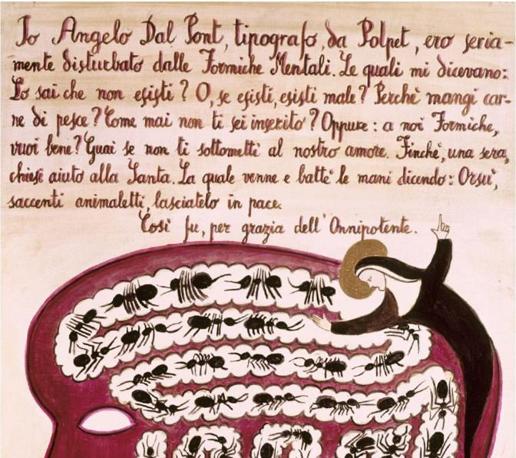 Io Angelo Dal Pont, tipografo, da Polpet, ero seria-
mente disturbato dalle Formiche Mentali. Le quali mi dicevano:
Lo sai che non esisti? O, se esisti, esisti male? Perchè mangi car-
ne di pesce? Come mai non ti sei inserito? Oppure: a noi Formiche,
vuoi bene? Guai se non ti sottometti al nostro amore. Finchè, una sera,
chiese aiuto alla Santa. La quale venne e battè le mani dicendo: Orsù,
saccenti animaletti, lasciatelo in pace.
Così fu, per grazia dell'Onnipotente.